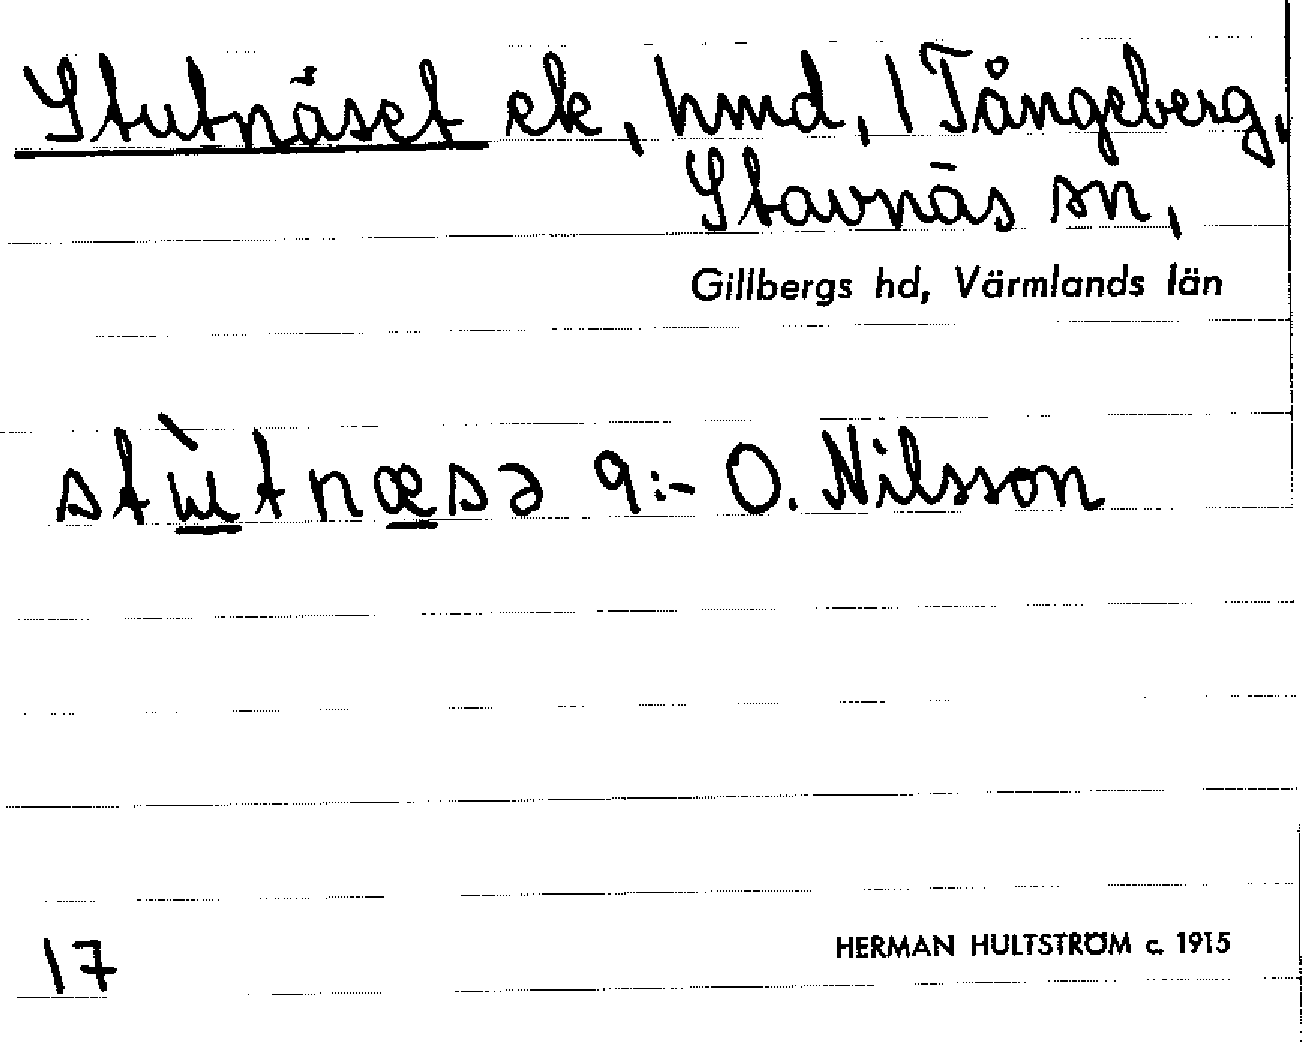 Stutnäset ek, hmd, 1 Tångeberg,
Stavnäs sn,
Gillbergs hd, Värmlands län
stɯ̀tnæsə 9:- O. Nilsson
17
HERMAN HULTSTRÖM c. 1915